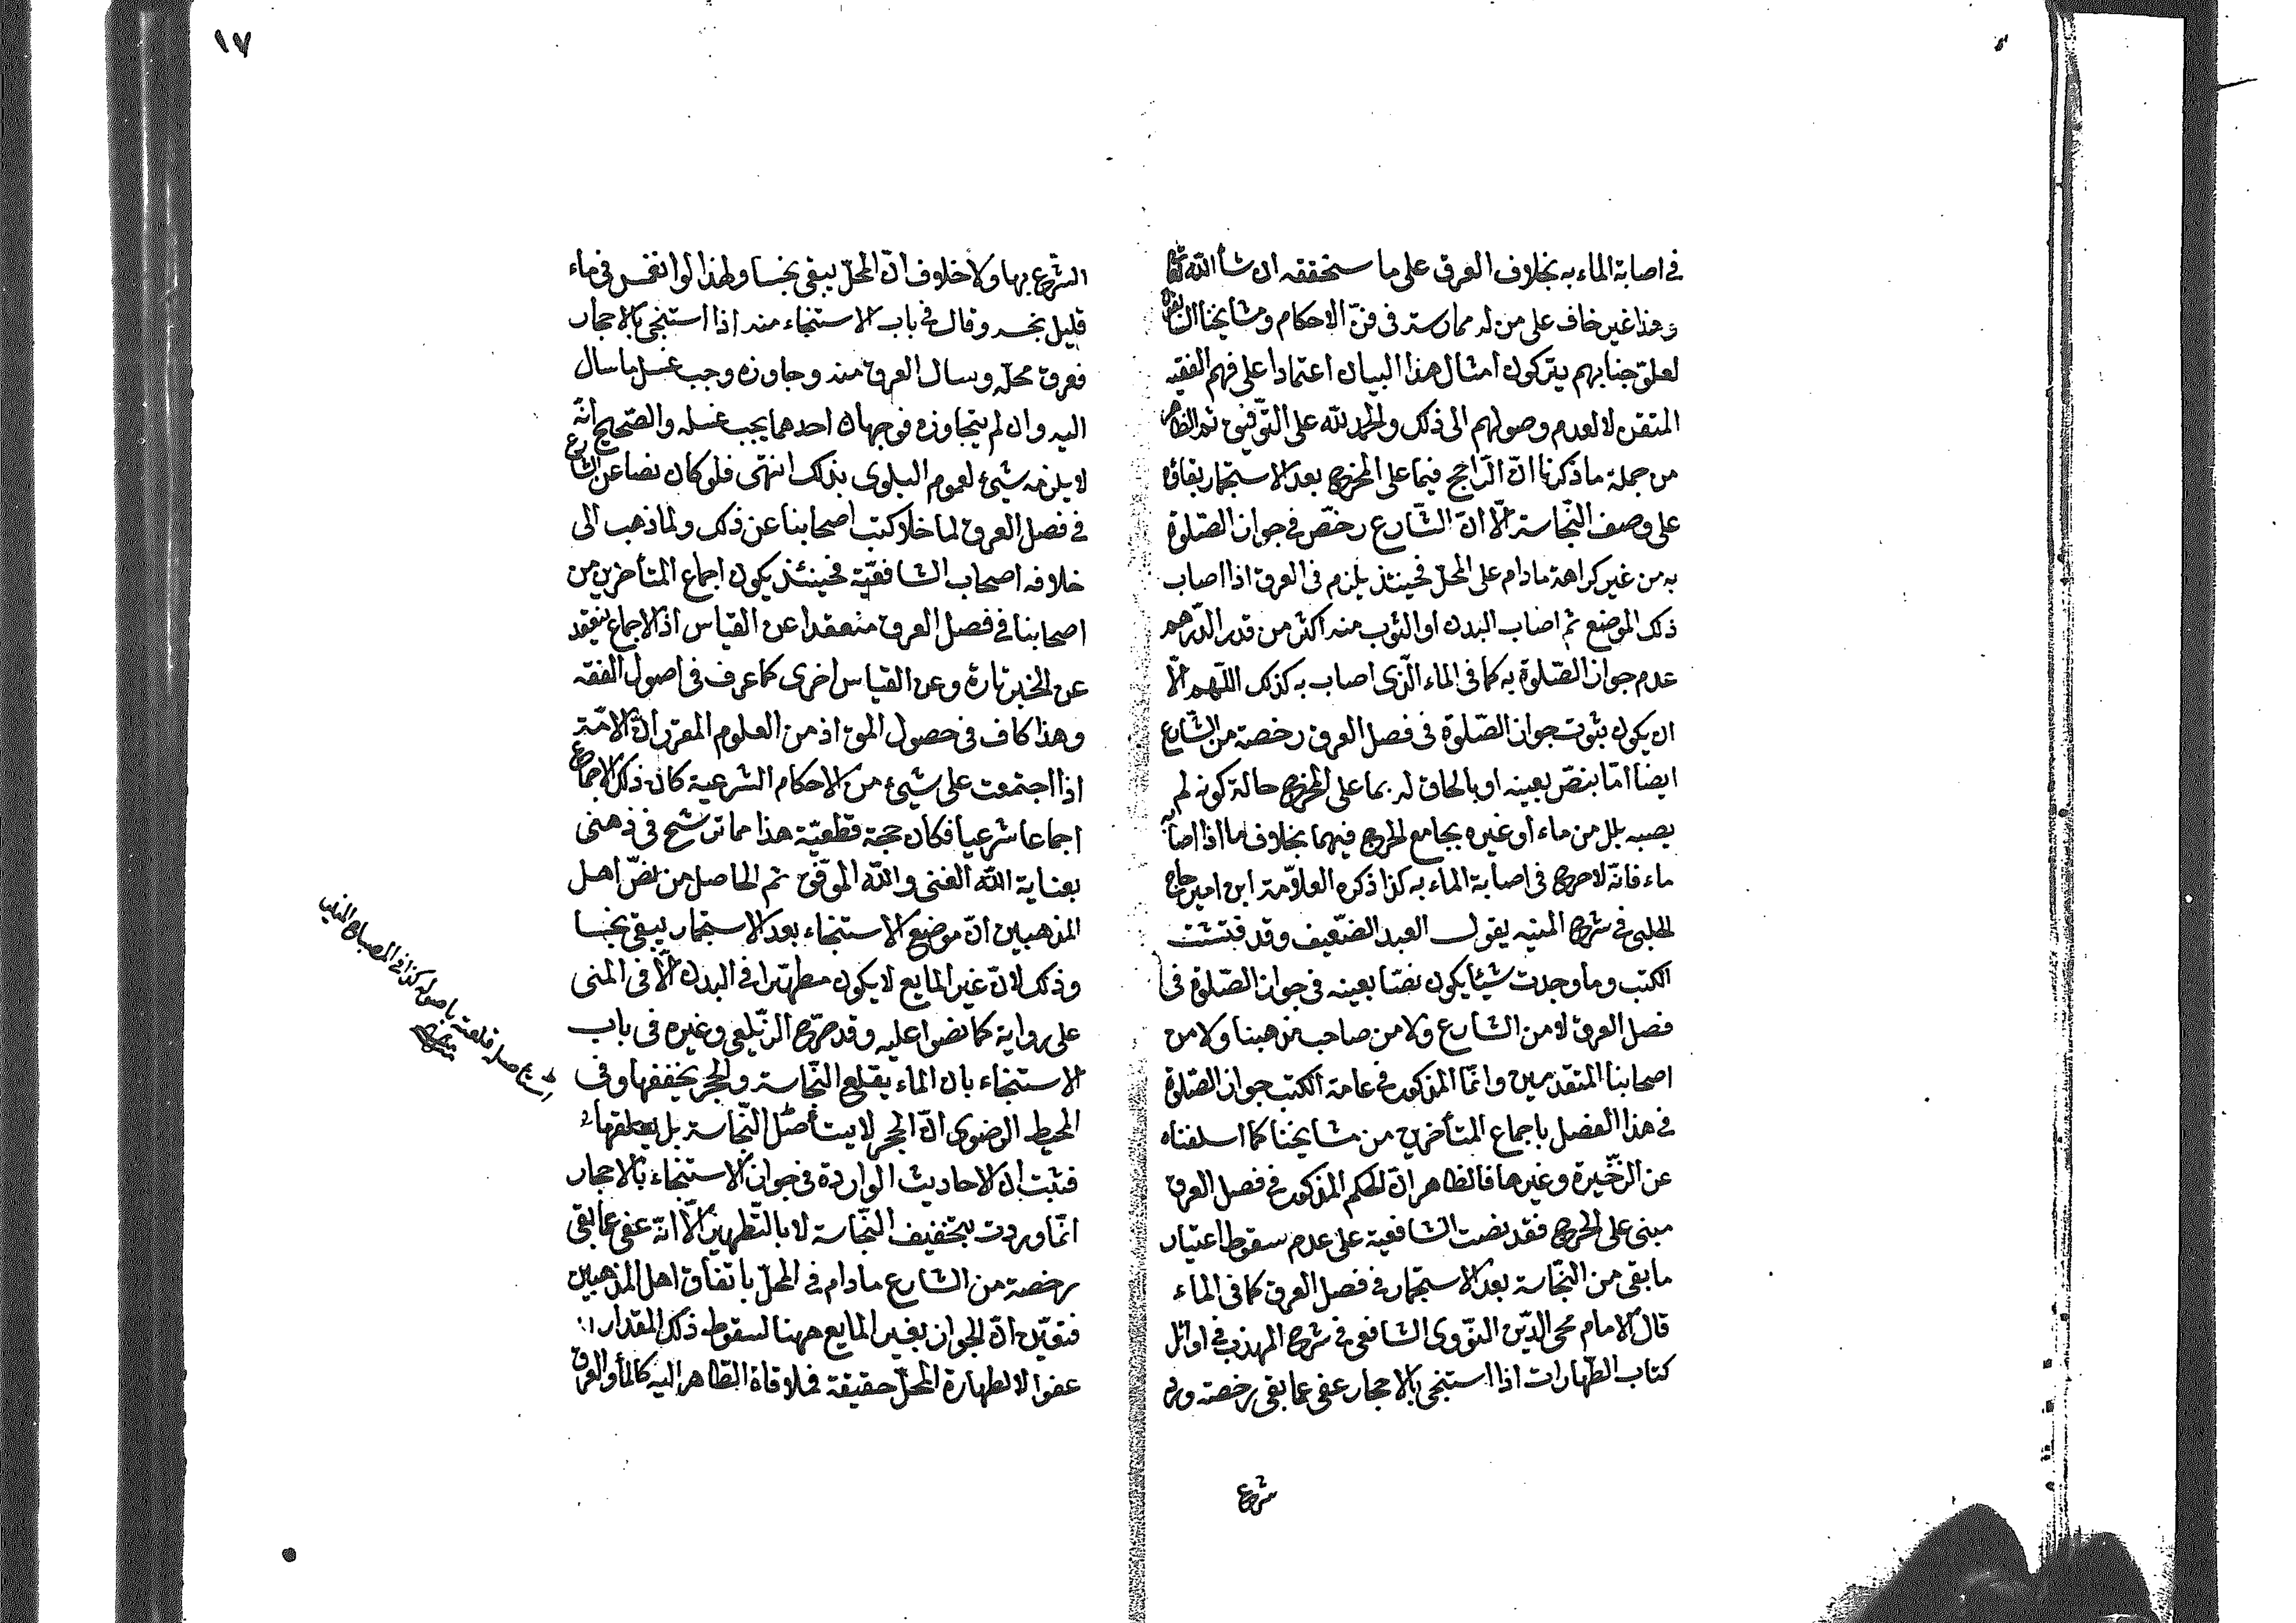 ١٧
في اصابة الماء به بخلاف العرق على ما سنحققه ان شاء الله تعالى
وهذا غير خاف على من له ممارسة في فنّ الاحكام ومشايخنا
لعلوّ جنابهم يتركون امثال هذا البيان اعتمادا على فهم الفقيه
المتقن لا لعدم وصولهم الى ذلك والحمد لله على التّوفيق ثم الظاهر
من جملة ما ذكرنا انّ الرّاجح فيما على المخرج بعد الاستجمار بقاؤه
على وصف النّجاسة الّا انّ الشّارع رخّص في جواز الصّلوة
به من غير كراهة مادام على المحلّ فحينئذ يلزم في العرق اذا اصاب
ذلك الموضع ثم اصاب البدن او الثوب منه اكثر من قدر الدّرهم
عدم جواز الصّلوة به كما في الماء الّذى اصاب به كذلك اللّهم الّا
ان يكون ثبوت جواز الصّلوة في فصل العرق رخصة من الشّارع
ايضا امّا بنصّ بعينه او بالحاق له بما على المخرج حالة كونه لم
يصبه بلل من ماء او غيره بجامع الحرج فيهما بخلاف ما اذا اصابه
ماء فانّه لا حرج في اصابة الماء به كذا ذكره العلّامة ابن امير حاج
الحلبى في شرح المنيه يقول العبد الضّعيف وقد فتشت
الكتب وما وجدت شيئا يكون نصّا بعينه في جواز الصّلوة في
فصل العرق لا من الشارع ولا من صاحب مذهبنا ولا من
اصحابنا المتقدمين وانّما المذكور في عامة الكتب جواز الصّلوة
في هذا الفصل باجماع المتأخرين من مشايخنا كما اسلفناه
عن الذّخيرة وغيرها فالظاهر انّ الحكم المذكور في فصل العرق
مبنى على الحرج فقد نصت الشافعية على عدم سقوط اعتبار
ما بقى من النّجاسة بعد الاستجمار في فصل العرق كما في الماء
قال الامام محى الدّين النّووى الشافعى في شرح المهذب في اوائل
كتاب الطّهارات اذا استنجى بالاحجار عفى عما بقى رخصة ورد
شرع
الشرع بها ولا خلاف انّ المحلّ يبقى نجسا ولهذا لو انغمس في ماء
قليل نجسه وقال في باب الاستنجاء منه اذا استنجى بالاحجار
فعرق محلّه وسال العرق منه وجاوزه وجب غسل ما سال
اليه وان لم يتجاوزه فوجهان احدهما يجب غسله والصّحيح انّه
لا يلزمه شيئ لعموم البلوى بذلك انتهى فلو كان نصا عن الشارع
في فصل العرق لما خلا كتب اصحابنا عن ذلك ولما ذهب الى
خلافه اصحاب الشافعيّة فحينئذ يكون اجماع المتأخرين من
اصحابنا في فصل العرق منعقدا عن القياس اذ الاجماع ينعقد
عن الخبر تارة وعن القياس اخرى كما عرف في اصول الفقه
وهذا كاف في حصول اذ من العلوم المقرر انّ الامّة
اذا اجتمعت على شيئ من الاحكام الشرعية كان ذلك الاجماع
اجماعا شرعيا فكان حجة قطعيّة هذا مما ترشح في ذهنى
بعناية الله الغنى والله الموّفق ثم الحاصل من نصّ اهل
المذهبين انّ موضع الاستنجاء بعد الاستجمار يبقى نجسا
وذلك لانّ غير المايع لا يكون مطهّرا في البدن الّا في المنى
على رواية كما نصوا عليه وقد صرّح الزّيلعى وغيره في باب
الاستنجاء بان الماء يقلع النّجاسة والحجر يخففها وفي
المحيط الرضوى انّ الحجر لا يستأصل النّجاسة بل
فثبت ان الاحاديث الواردة في جواز الاستنجاء بالاحجار
انّما وردت بتخفيف النّجاسة لا بالتّطهير الّا انّه عفى عما بقى
رخصة من الشارع مادام في المحلّ باتفاق اهل المذهبين
فتعيّن انّ الجواز بغير المايع ههنا لسقوط ذلك المقدار
عفوا لا لطهارة المحلّ حقيقة فملاقاة الطّاهر اليه كالماء والعرق
قلعته باصوله كذا في المصباح المنير